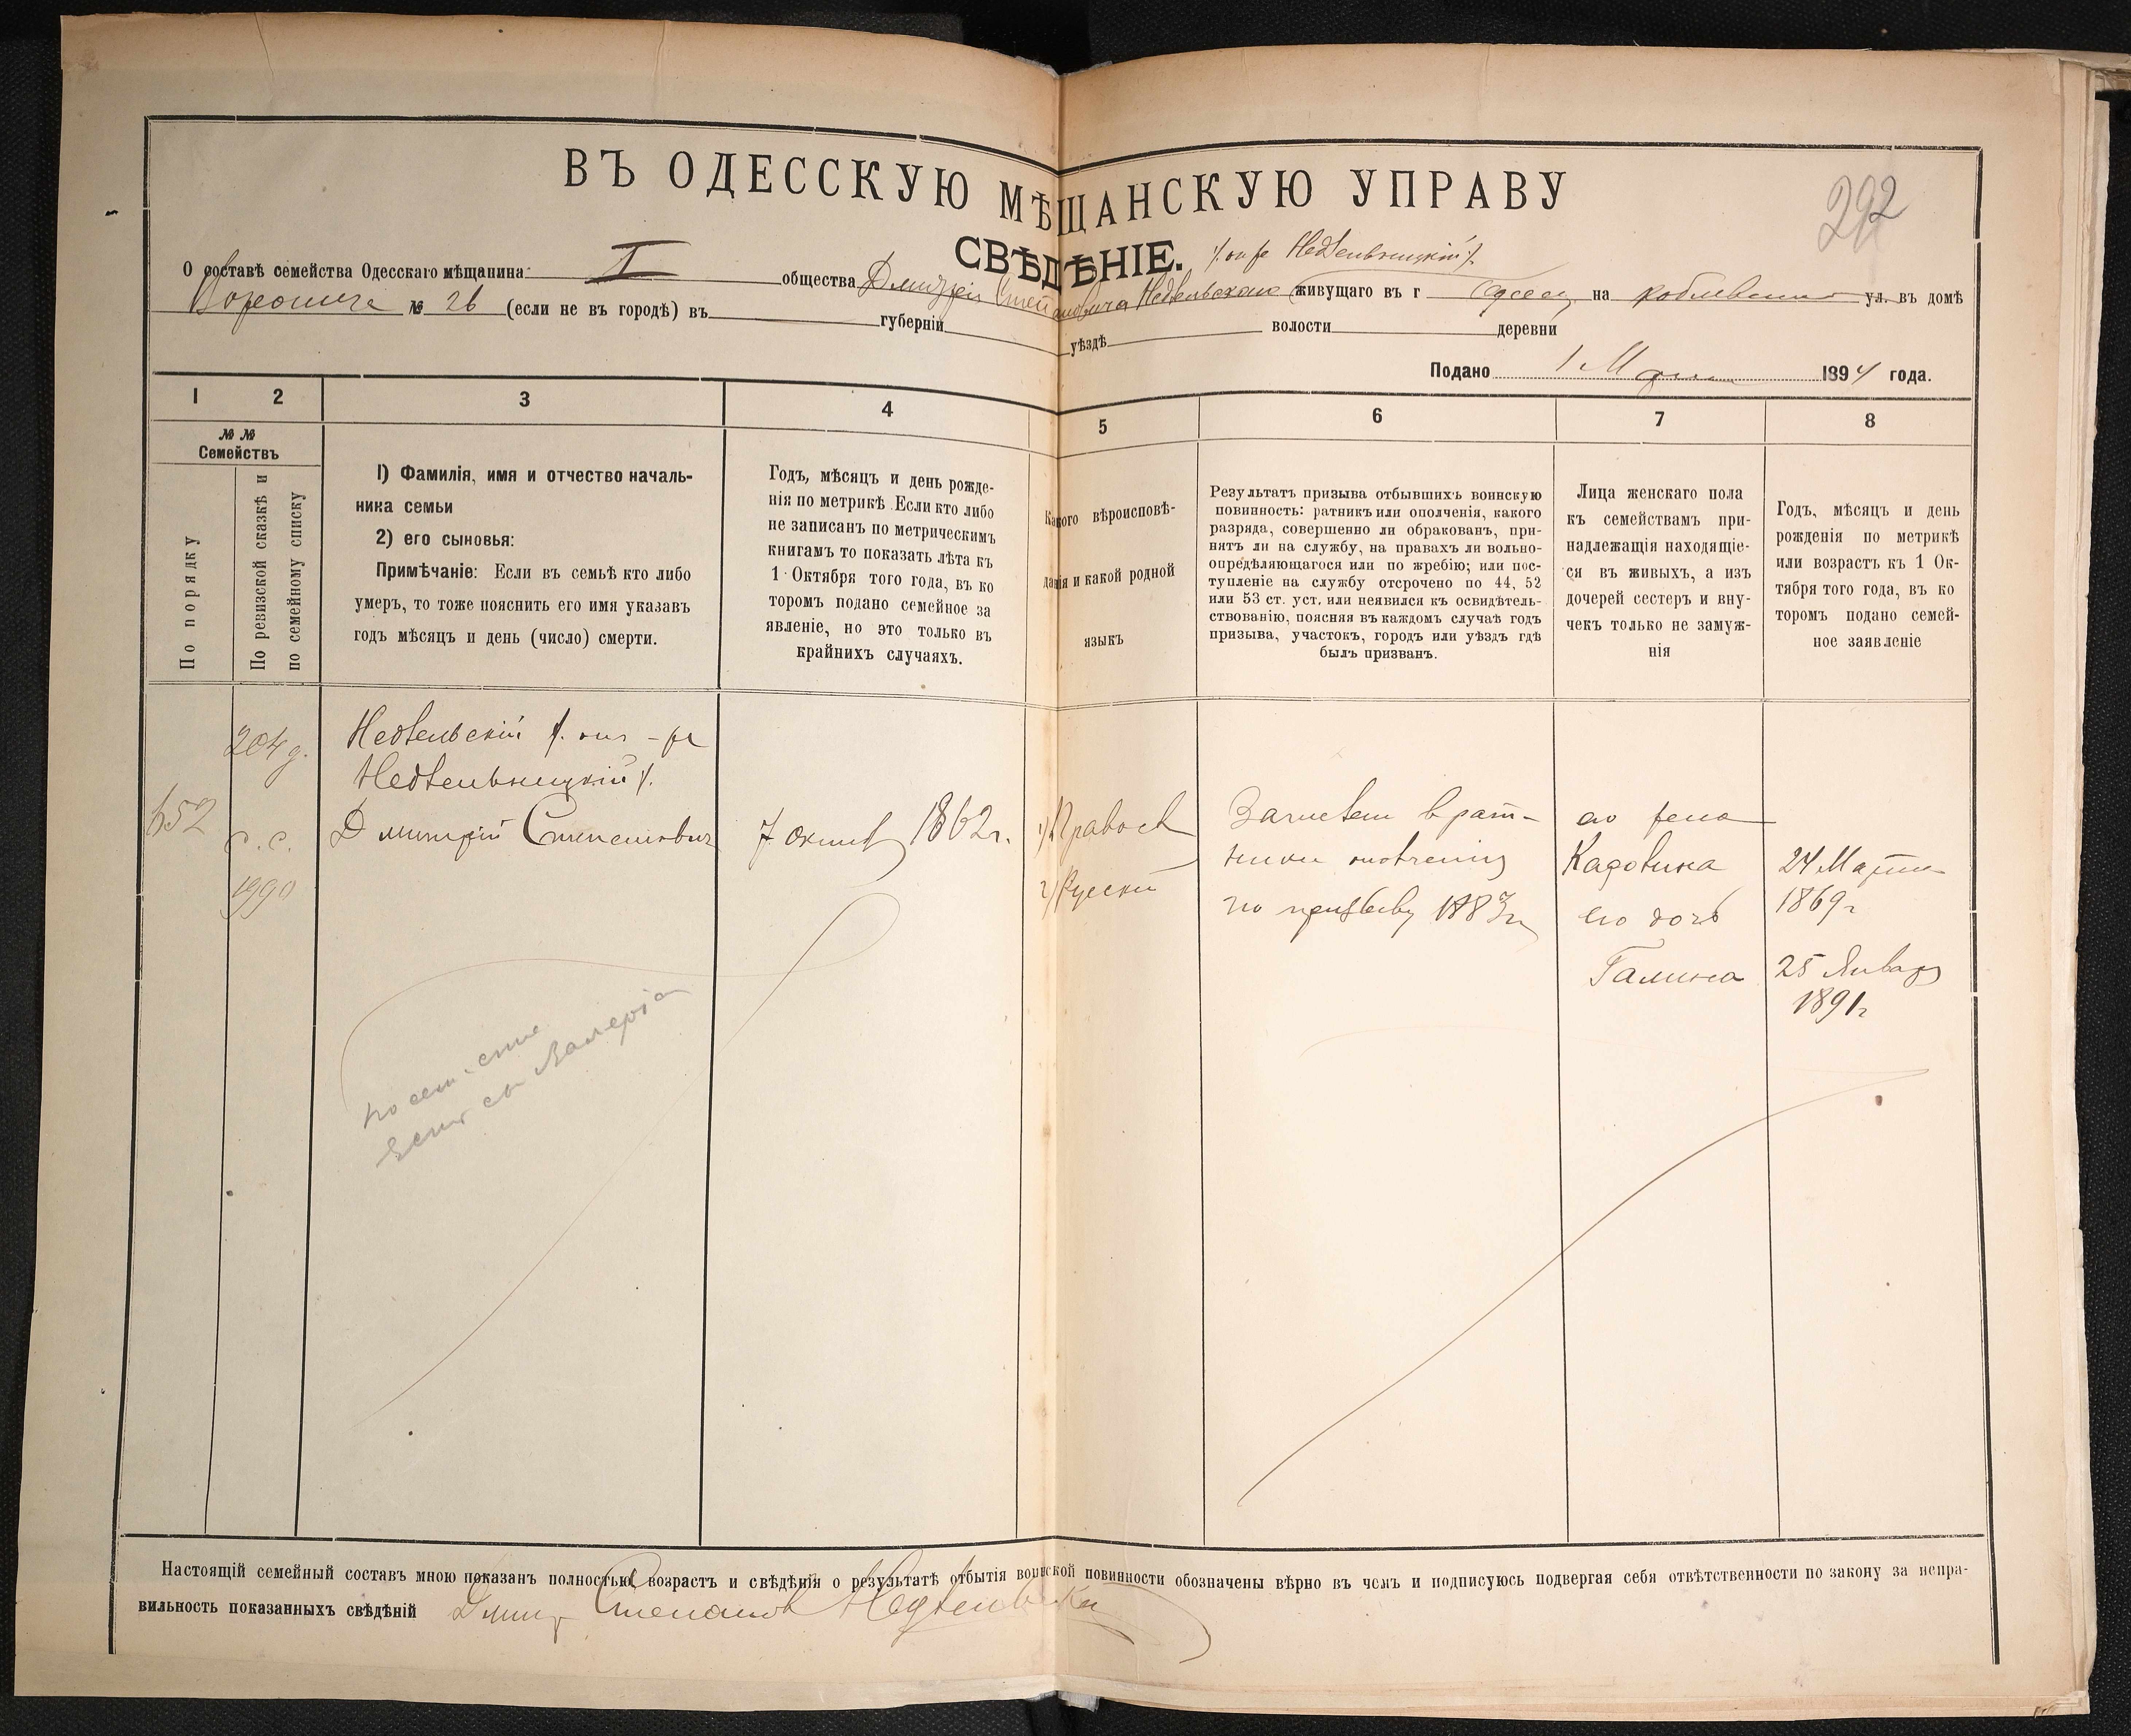 292
ВЪ ОДЕССКУЮ МѢЩАНСКУЮ УПРАВУ
СВѢДѢНІЕ. /: онъ же Недѣльницкій :/
О составѣ семейства Одесскаго мѣщанина: I общества Дмитрій Степановича Недѣльскаго живущаго въ г Одессѣ, на Коблевской ул. въ домѣ
№ 26 (если не въ городѣ) въ губерніи уѣздѣ волости деревни
Подано 1 Марта 1894 года.
1 2 3 4 5 6 7 8
№ № Семействъ
По порядку
По ревизской сказкѣ и по семейному списку
1) Фамилія, имя и отчество началь-
ника семьи
2) его сыновья:
Примѣчаніе: Если въ семьѣ кто либо
умеръ, то тоже пояснить его имя указавъ
годъ мѣсяцъ и день (число) смерти.
Годъ, мѣсяцъ и день рожде-
нія по метрикѣ. Если кто либо
не записанъ по метрическимъ
книгамъ то показать лѣта къ
1 Октября того года, въ ко
торомъ подано семейное за
явленіе, но это только въ
крайнихъ случаяхъ.
Какого вѣроисповѣ-
данія и какой родной
языкъ
Результатъ призыва отбывшихъ воинскую
повинность: ратникъ или ополченія, какого
разряда, совершенно ли обракованъ, при-
нятъ ли на службу, на правахъ ли вольно-
опредѣляющагося или по жребію; или пос-
тупленіе на службу отсрочено по 44, 52
или 53 ст. уст. или неявился къ освидѣтель-
ствованію, поясняя въ каждомъ случаѣ годъ
призыва, участокъ, городъ или уѣздъ гдѣ
былъ призванъ.
Лица женскаго пола
къ семействамъ при-
надлежащія находящіе-
ся въ живыхъ, а изъ
дочерей сестеръ и вну-
чекъ только не замуж-
нія
Годъ, мѣсяцъ и день
рожденія по метрикѣ
или возрастъ къ 1 Ок-
тября того года, въ ко
торомъ подано семей-
ное заявленіе
652
204 д.
с. с.
1990
Недѣльскій /: онъ-же
Недѣльницкій :/
Дмитрій Степановичъ
7 октяб 1862 г.
1) Правосл
2) Русскій
Зачисленъ в рат-
ники ополченія
по призыву 1883 г
его жена
его дочь
Галина
24 Марта
1869 г
25 Января
1891 г
по сем. спис
есть сын Валеріан
Настоящій семейный составъ мною показанъ полностью, возрастъ и свѣдѣнія о результатѣ отбытія воинской повинности обозначены вѣрно въ чемъ и подписуюсь подвергая себя отвѣтственности по закону за непра-
вильность показанныхъ свѣдѣній Дмитр Степанов Недѣльскій